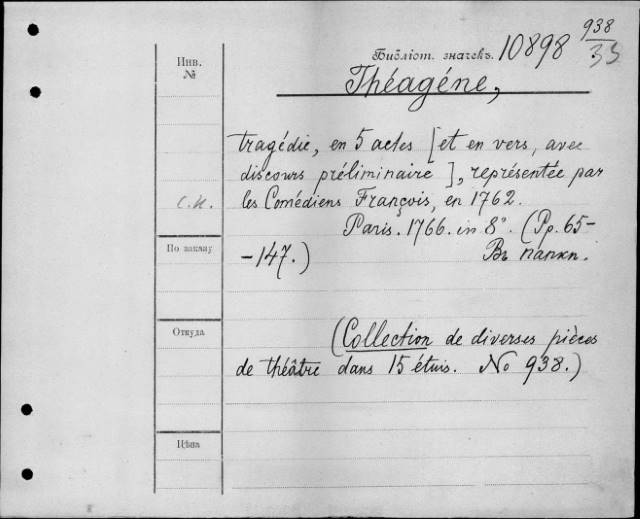 938
Инв. Библіот. значекъ. 10898 33
№
Théagéne,
tragédie, en 5 actes [et en vers, avec
discours préliminaire], représentée par
с.к. les Comédiens François, en 1762.
Paris. 1766. in 8°. (Pp. 65–
По заказу –147.) Въ папкп.
Откуда (Collection de diverses pièces
de théâtre dans 15 étuis. No 938.)
Цѣна